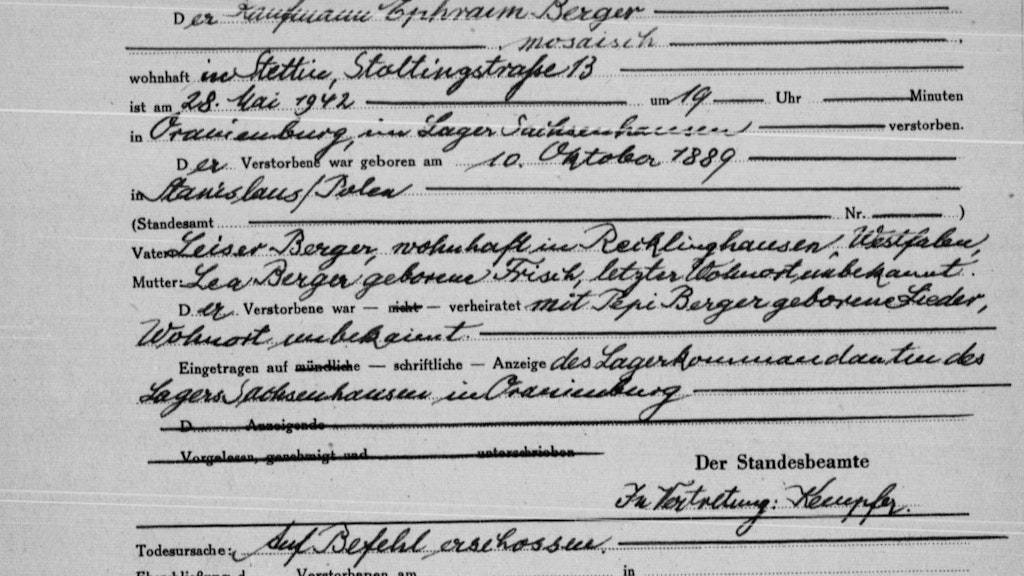 Der Kaufmann Ephraim Berger
mosaisch
wohnhaft in Stettin, Stoltingstraße 13
ist am 28. Mai 1942 um 19 Uhr Minuten
in Oranienburg, im Lager Sachsenhausen verstorben.
Der Verstorbene war geboren am 10. Oktober 1889
in Stanislaus/Polen
(Standesamt Nr. )
Vater: Leiser Berger, wohnhaft in Recklinghausen, Westfalen,
Mutter: Lea Berger geborene Frisch, letzter Wohnort unbekannt.
Der Verstorbene war — nicht — verheiratet mit Pepi Berger geborene Lieder,
Wohnort unbekannt.
Eingetragen auf mündliche — schriftliche — Anzeige des Lagerkommandanten des
Lagers Sachsenhausen in Oranienburg
D Anzeigende
Vorgelesen, genehmigt und unterschrieben
Der Standesbeamte
In Vertretung: Kempfer.
Todesursache: Auf Befehl erschossen.
Eheschließung d Verstorbenen am in